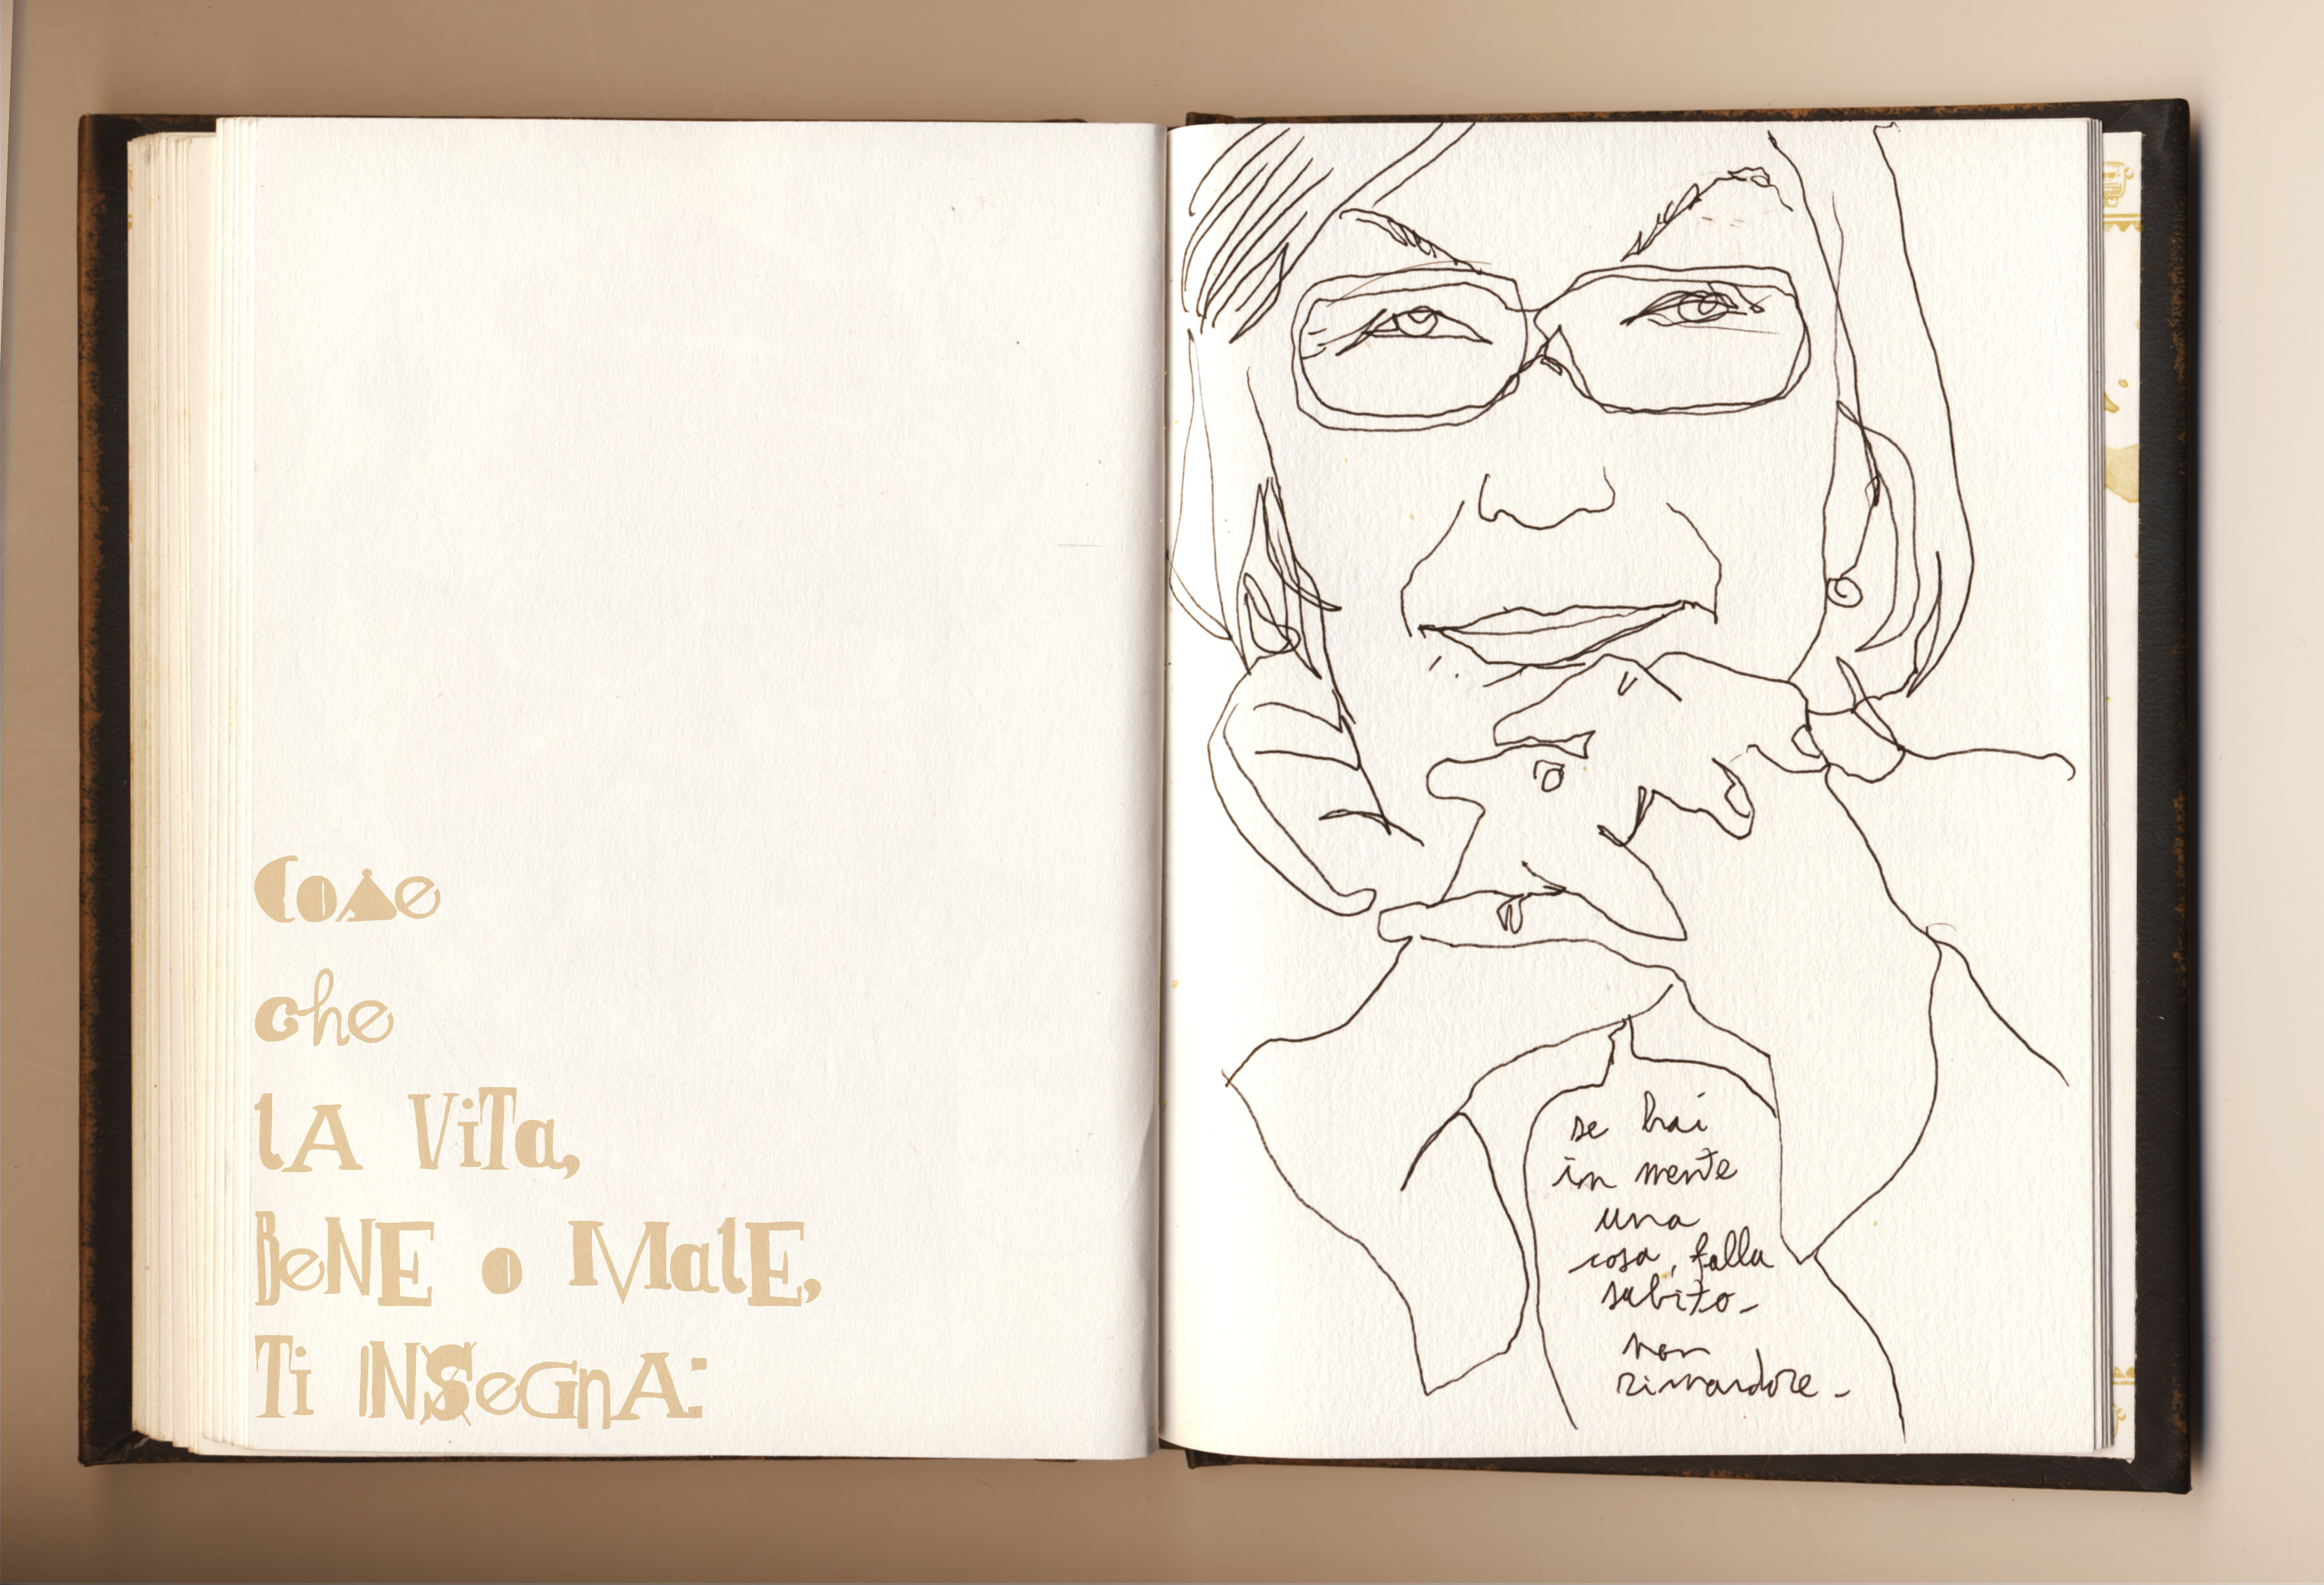 Cose
che
lA ViTa,
BeNE o MalE,
Ti INSeGnA:
se hai
in mente
una
cosa, falla
subito-
non
rimandare-